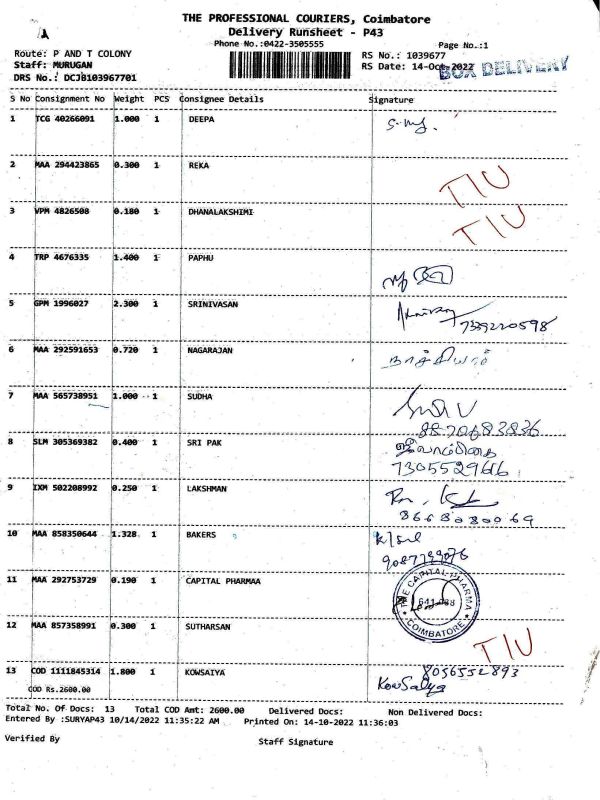 THE PROFESSIONAL COURIERS, Coimbatore
Delivery Runsheet - P43
Phone No.:0422-3505555
Page No.:1
Route: P AND T COLONY
RS No.: 1039677
Staff: MURUGAN
RS Date: 14-Oct-2022
BOX DELIVERY
DRS No.: DCJB103967701
S No Consignment No Weight PCS Consignee Details Signature
1 TCG 40266091 1.000 1 DEEPA
2 MAA 294423865 0.300 1 REKA TIU
3 VPM 4826508 0.180 1 DHANALAKSHIMI TIU
4 TRP 4676335 1.400 1 PAPHU
5 GPM 1996027 2.300 1 SRINIVASAN
7339220598
6 MAA 292591653 0.720 1 NAGARAJAN நாச்சியார்
7 MAA 565738951 1.000 1 SUDHA
8870683836
8 SLM 305369382 0.400 1 SRI PAK
7305529616
9 IXM 502208992 0.250 1 LAKSHMAN
8668080069
10 MAA 858350644 1.328 1 BAKERS
11 MAA 292753729 0.190 1 CAPITAL PHARMAA
THE CAPITAL PHARMA
COIMBATORE
12 MAA 857358991 0.300 1 SUTHARSAN TIU
13 COD 1111845314 1.800 1 KOWSAIYA 8056552893
COD Rs.2600.00 KowSalya
Total No. Of Docs: 13 Total COD Amt: 2600.00 Delivered Docs: Non Delivered Docs:
Entered By :SURYAP43 10/14/2022 11:35:22 AM Printed On: 14-10-2022 11:36:03
Verified By Staff Signature